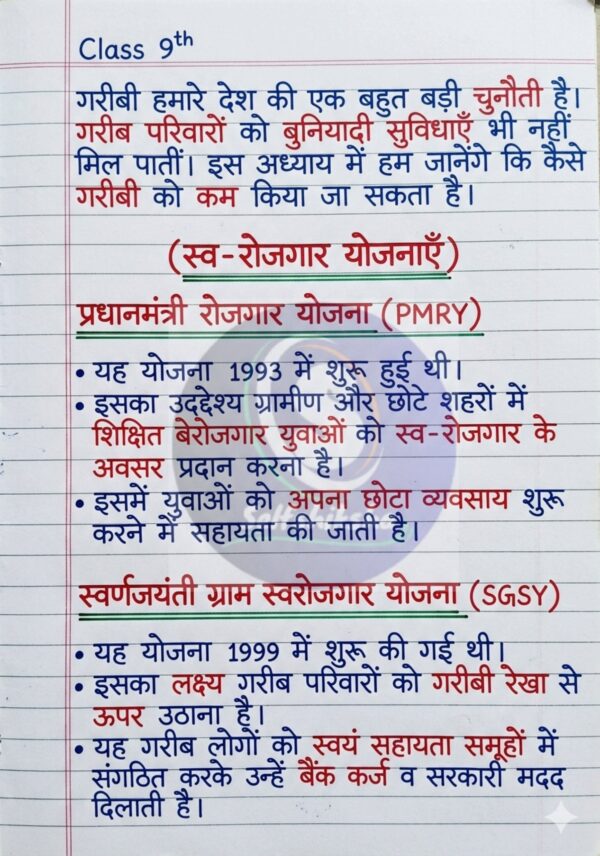 Class 9th
गरीबी हमारे देश की एक बहुत बड़ी चुनौती है।
गरीब परिवारों को बुनियादी सुविधाएँ भी नहीं
मिल पातीं। इस अध्याय में हम जानेंगे कि कैसे
गरीबी को कम किया जा सकता है।
(स्व-रोजगार योजनाएँ)
प्रधानमंत्री रोजगार योजना (PMRY)
• यह योजना 1993 में शुरू हुई थी।
• इसका उद्देश्य ग्रामीण और छोटे शहरों में
शिक्षित बेरोजगार युवाओं को स्व-रोजगार के
अवसर प्रदान करना है।
• इसमें युवाओं को अपना छोटा व्यवसाय शुरू
करने में सहायता की जाती है।
स्वर्णजयंती ग्राम स्वरोजगार योजना (SGSY)
• यह योजना 1999 में शुरू की गई थी।
• इसका लक्ष्य गरीब परिवारों को गरीबी रेखा से
ऊपर उठाना है।
• यह गरीब लोगों को स्वयं सहायता समूहों में
संगठित करके उन्हें बैंक कर्ज व सरकारी मदद
दिलाती है।